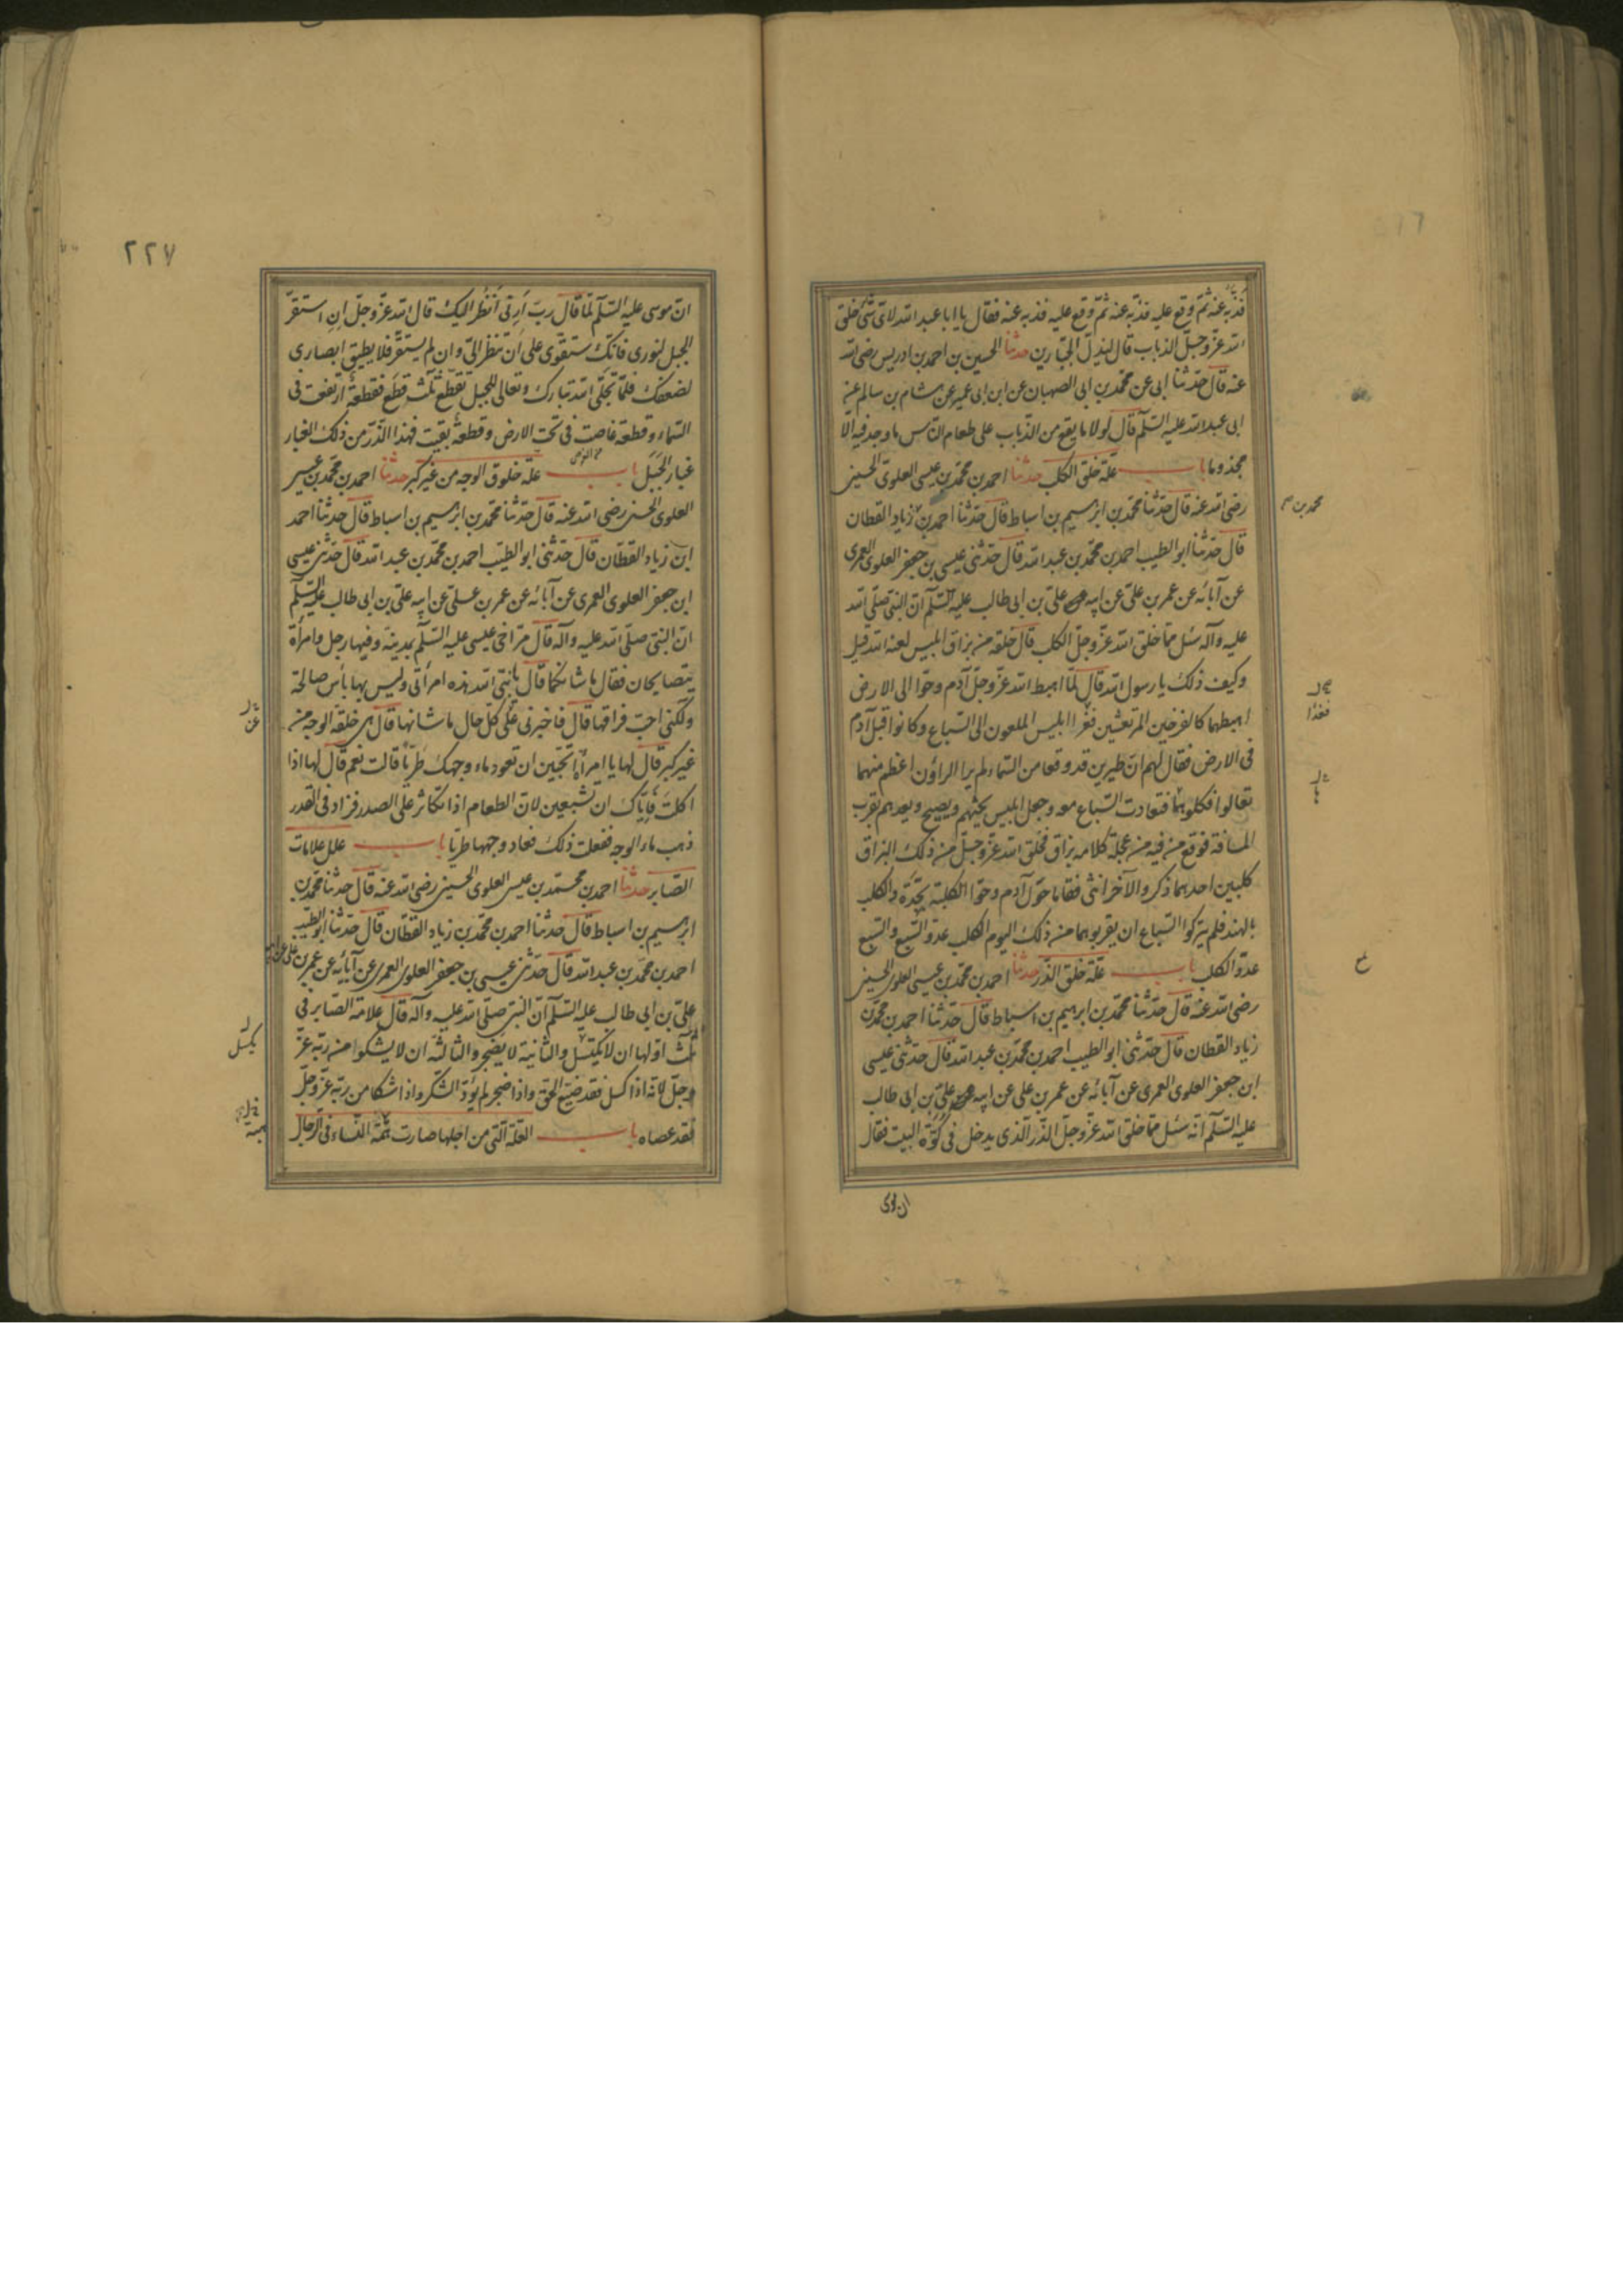 فذبه عنه ثم وقع عليه فذبه عنه ثم وقع عليه فذبه عنه فقال يا ابا عبد الله لاى شئ خلق
الله عز وجل الذباب قال ليذل الجبارين حدثنا الحسين بن احمد بن ادريس رضى الله
عنه قال حدثنا ابى عن محمد بن ابى الصهبان عن ابن ابى عمير عن هشام بن سالم عن
ابى عبد الله عليه السلم قال لولا ما يقع من الذباب على طعام الناس ما وجد فيه الا
مجذوما باب علة خلق الكلب حدثنا احمد بن محمد بن عيسى العلوى الحسينى
رضى الله عنه قال حدثنا محمد بن ابرهيم بن اسباط قال حدثنا احمد بن زياد القطان
محمد بن
قال حدثنا ابو الطيب احمد بن محمد بن عبد الله قال حدثنى عيسى بن جعفر العلوى العمرى
عن آبائه عن عمر بن على عن ابيه على بن ابى طالب عليه السلم ان النبى صلى الله
عليه وآله سئل مما خلق الله عز وجل الكلب قال خلقه من بزاق ابليس لعنه الله قيل
وكيف ذلك يا رسول الله قال لما اهبط الله عز وجل آدم وحوا الى الارض
اهبطهما كالفرخين المرتعشين فعدا ابليس الملعون الى السباع وكانوا قبل آدم
فغدا
فى الارض فقال لهم ان طيرين قد وقعا من السماء لم ير الراؤن اعظم منهما
تعالوا فكلوهما فتعادت السباع معه وجعل ابليس يحثهم ويصيح ويعدهم بقرب
المسافة فوقع من فيه من عجلة كلامه بزاق فخلق الله عز وجل من ذلك البزاق
كلبين احدهما ذكر والآخر انثى فقاما حول آدم وحوا الكلبة بجدة والكلب
بالهند فلم يتركوا السباع ان يقربوهما من ذلك اليوم الكلب عدو السبع والسبع
عدو الكلب باب علة خلق الذر حدثنا احمد بن محمد بن عيسى العلوى الحسينى
رضى الله عنه قال حدثنا محمد بن ابرهيم بن اسباط قال حدثنا احمد بن محمد بن
زياد القطان قال حدثنى ابو الطيب احمد بن محمد بن عبد الله قال حدثنى عيسى
ابن جعفر العلوى العمرى عن آبائه عن عمر بن على عن ابيه على بن ابى طالب
عليه السلم انه سئل مما خلق الله عز وجل الذر الذى يدخل فى كوة البيت فقال
ان موسى
٢٢٧
ان موسى عليه السلم لما قال رب ارنى انظر اليك قال الله عز وجل ان استقر
الجبل لنورى فانك ستقوى على ان تنظر الى وان لم يستقر فلا يطيق ابصارى
لضعفك فلما تجلى الله تبارك وتعالى للجبل تقطع ثلث قطع فقطعة ارتفعت فى
السماء وقطعة غاصت فى تحت الارض وقطعة بقيت فهذا الذر من ذلك الغبار
غبار الجبل باب علة خلوق الوجه من غير كبر حدثنا احمد بن محمد بن عيسى
العلوى الحسينى رضى الله عنه قال حدثنا محمد بن ابرهيم بن اسباط قال حدثنا احمد
ابن زياد القطان قال حدثنى ابو الطيب احمد بن محمد بن عبد الله قال حدثنى عيسى
ابن جعفر العلوى العمرى عن آبائه عن عمر بن على عن ابيه على بن ابى طالب عليه السلم
ان النبى صلى الله عليه وآله قال مر اخى عيسى عليه السلم بمدينة وفيها رجل وامرأة
يتصايحان فقال ما شانكما قال يا نبى الله هذه امرأتى وليس بها بأس صالحة
ولكنى احب فراقها قال فاخبرنى على كل حال ما شانها قال هى خلقة الوجه من
غير كبر قال لها يا امرأة اتحبين ان تعود ماء وجهك طريا قالت نعم قال لها اذا
اكلت فاياك ان تشبعين لان الطعام اذا تكاثر على الصدر فزاد فى القدر
ذهب ماء الوجه ففعلت ذلك فعاد وجهها طريا باب علل علامات
الصابر حدثنا احمد بن محمد بن عيسى العلوى الحسينى رضى الله عنه قال حدثنا محمد بن
ابرهيم بن اسباط قال حدثنا احمد بن محمد بن زياد القطان قال حدثنا ابو الطيب
احمد بن محمد بن عبد الله قال حدثنى عيسى بن جعفر العلوى العمرى عن آبائه عن عمر بن على عن ابيه
على بن ابى طالب عليه السلم ان النبى صلى الله عليه وآله قال علامة الصابر فى
ثلث اولها ان لا يكسل والثانية لا يضجر والثالثة ان لا يشكوا من ربه عز
يكسل
وجل لانه اذا كسل فقد ضيع الحق واذا ضجر لم يؤد الشكر واذا شكا من ربه عز وجل
فقد عصاه باب العلة التى من اجلها صارت همة النساء فى الرجال